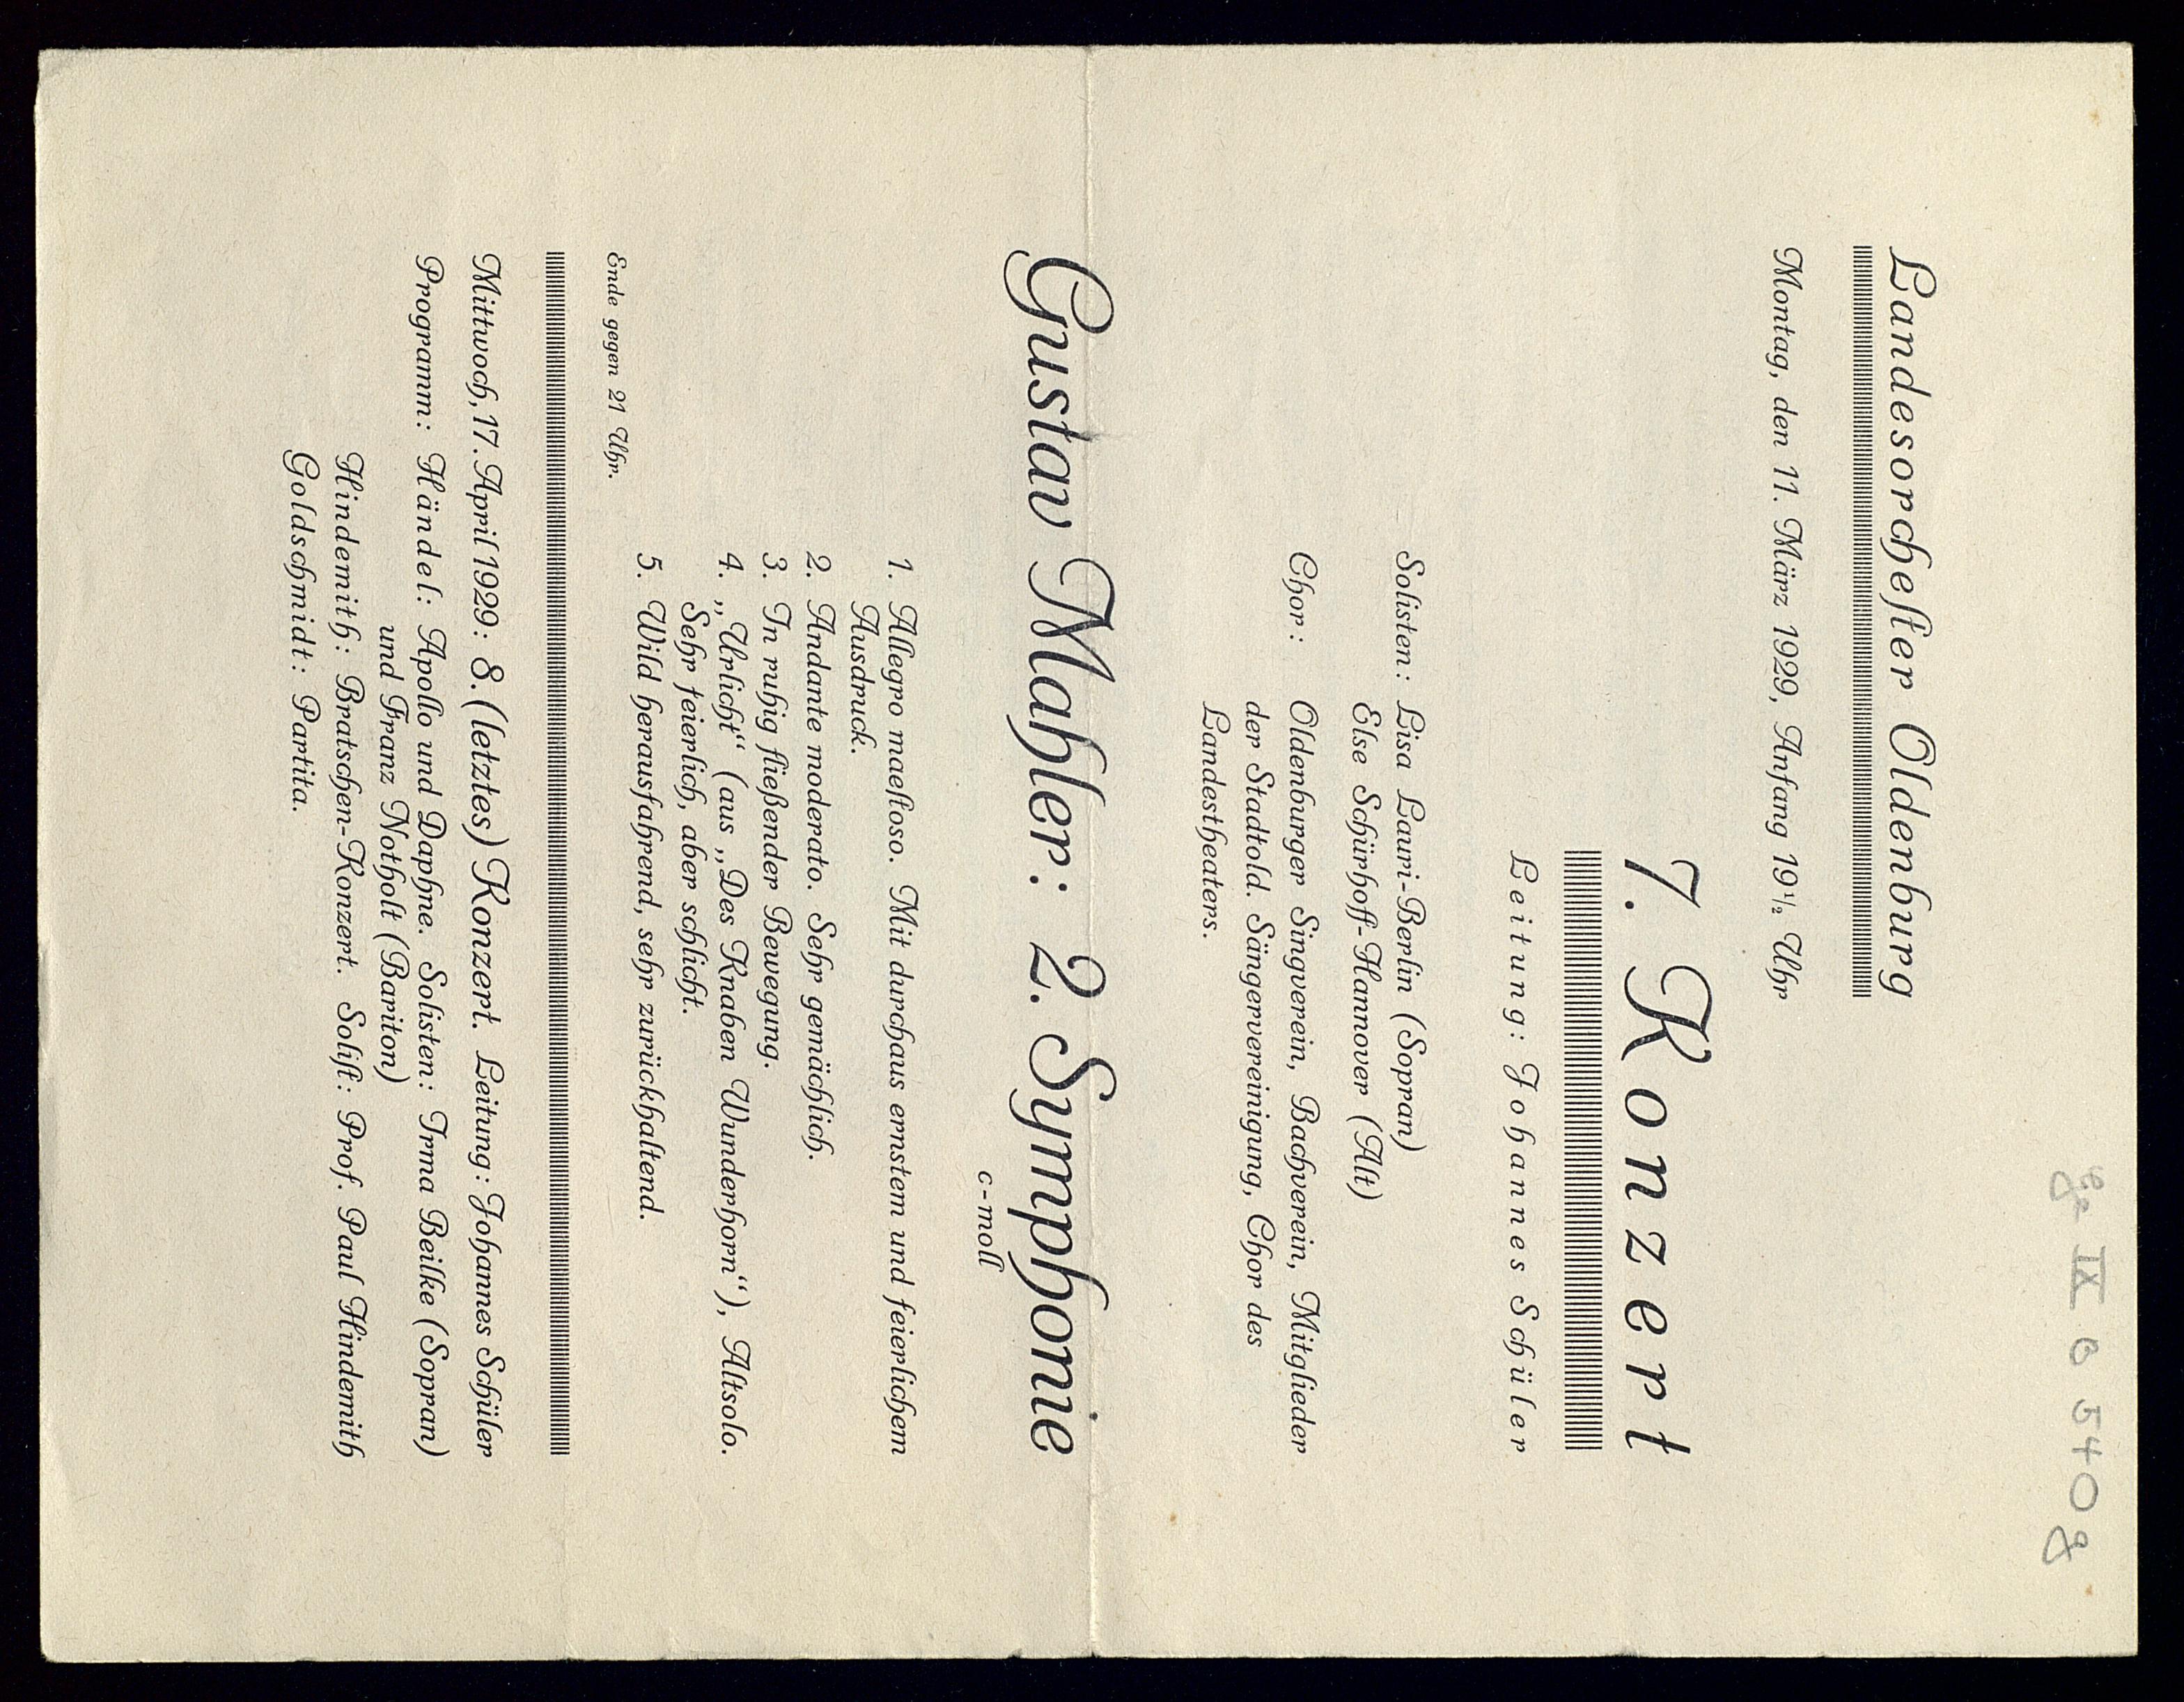 Ge IX B 540g
Landesorchester Oldenburg
Montag, den 11. März 1929, Anfang 19½ Uhr
7. Konzert
Leitung: Johannes Schüler
Solisten: Lisa Lauri-Berlin (Sopran)
Else Schürhoff-Hannover (Alt)
Chor: Oldenburger Singverein, Bachverein, Mitglieder
der Stadtold. Sängervereinigung, Chor des
Landestheaters.
Gustav Mahler: 2. Symphonie
c-moll
1. Allegro maestoso. Mit durchaus ernstem und feierlichem
Ausdruck.
2. Andante moderato. Sehr gemächlich.
3. In ruhig fließender Bewegung.
4. „Urlicht“ (aus „Des Knaben Wunderhorn“), Altsolo.
Sehr feierlich, aber schlicht.
5. Wild herausfahrend, sehr zurückhaltend.
Ende gegen 21 Uhr.
Mittwoch, 17. April 1929: 8. (letztes) Konzert. Leitung: Johannes Schüler
Programm: Händel: Apollo und Daphne. Solisten: Irma Beilke (Sopran)
und Franz Notholt (Bariton)
Hindemith: Bratschen-Konzert. Solist: Prof. Paul Hindemith
Goldschmidt: Partita.